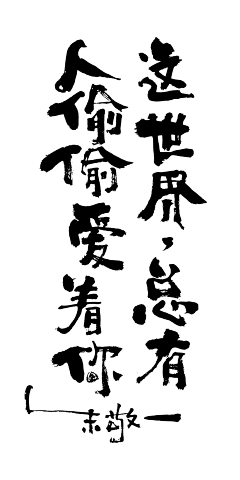 这世界，总有
人偷偷爱着你
一敬末